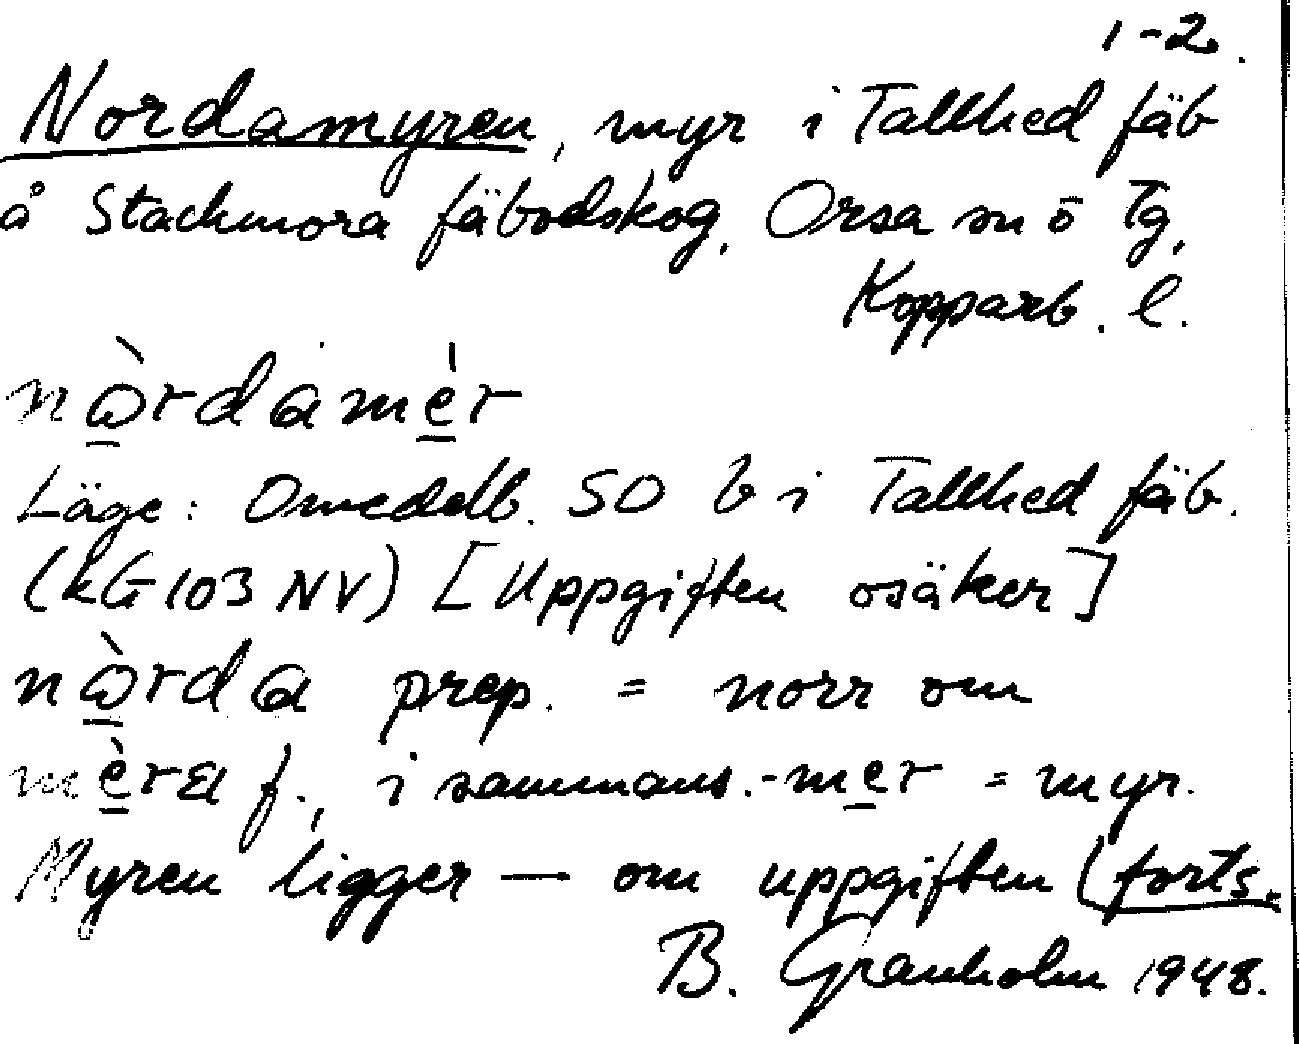 1-2.
Nordamyren, myr i Tallhed fäb
å Stackmora fäbodskog, Orsa sn ö Tg,
Kopparb. l.
nὼrdamèr
Läge: Omedelb. SO b i Tallhed fäb.
(kG 103 NV) [Uppgiften osäker]
nὼrda prep. = norr om
mèra f., i sammans. -mer = myr.
Myren ligger — om uppgiften (forts.
B. Granholm 1948.